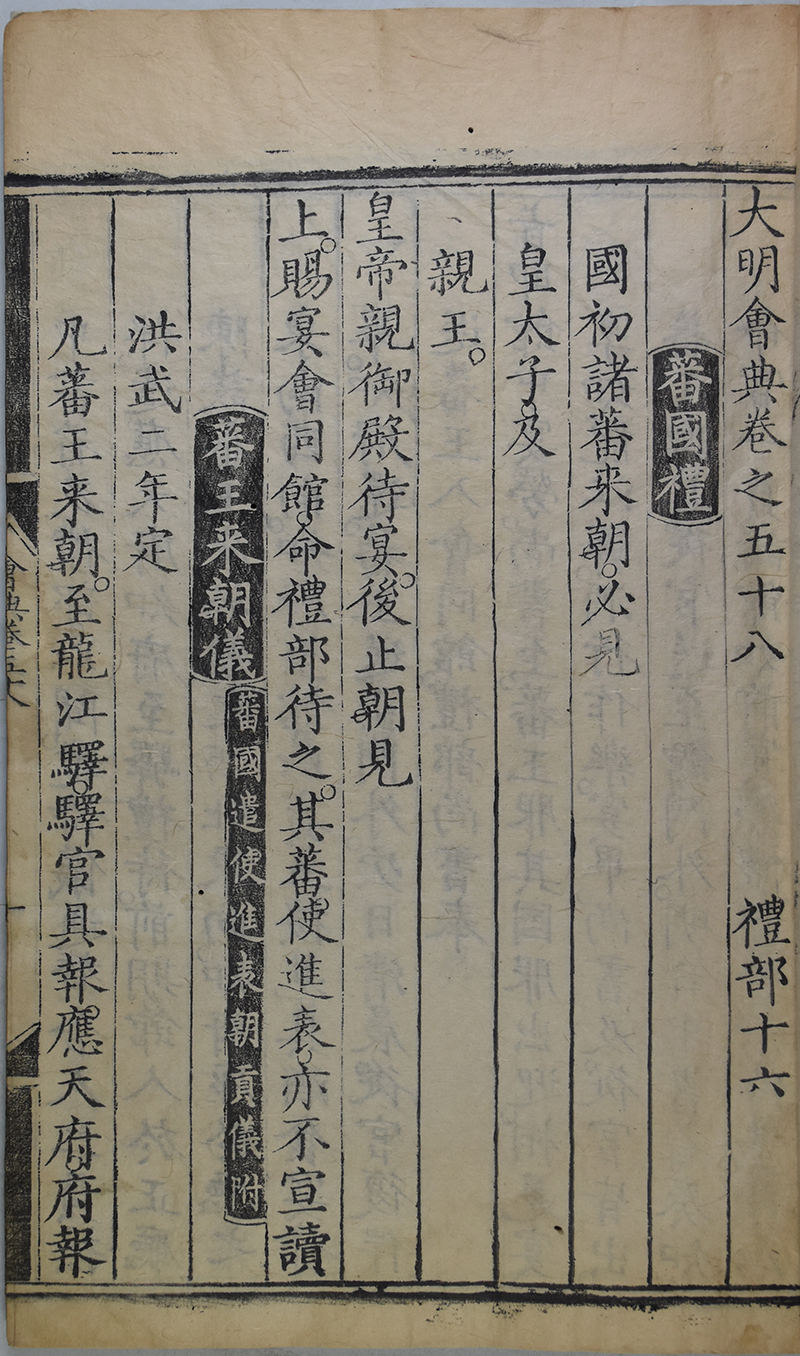 大明會典卷之五十八　禮部十六
蕃國禮
國初諸蕃来朝。必見
皇太子。及
親王。
皇帝親御殿待宴。後止朝見
上。賜宴會同館。命禮部待之。其蕃使進表。亦不宣讀
蕃王来朝儀 蕃國遣使進表朝貢儀附
洪武二年定
凡蕃王来朝。至龍江驛。驛官具報。應天府。府報
會典卷五十八